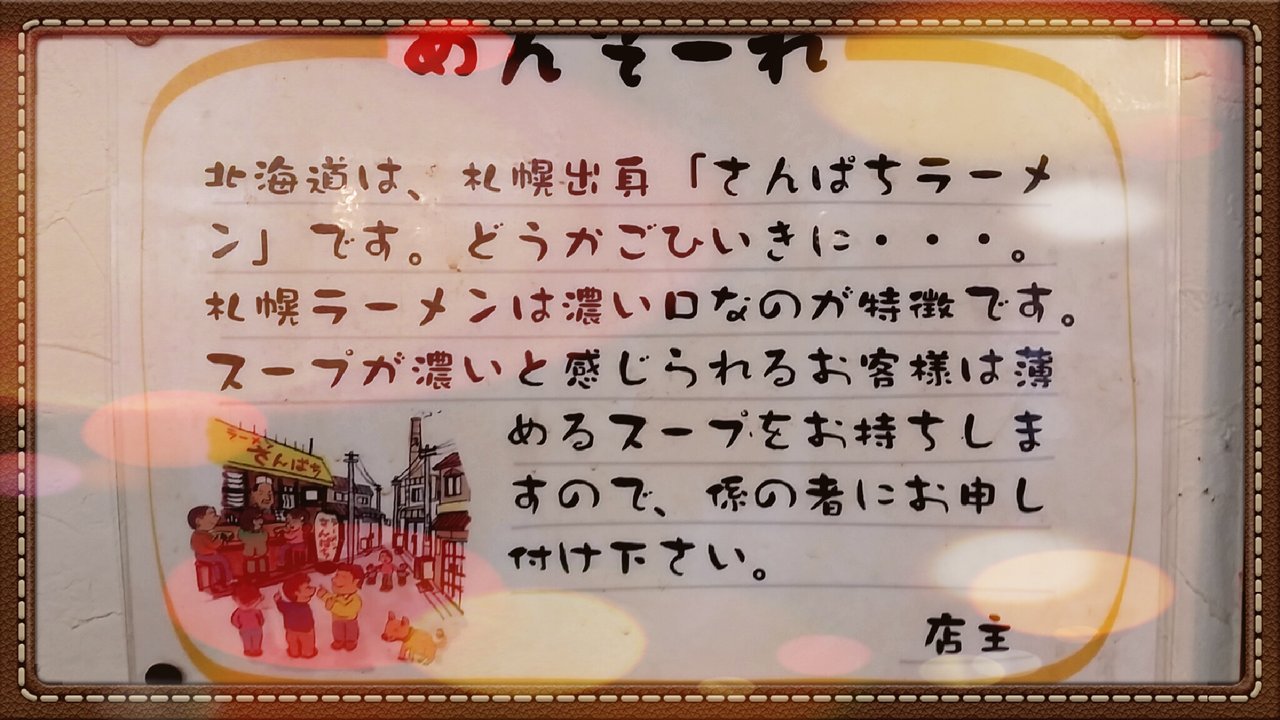 めんそーれ
北海道は、札幌出身「さんぱちラーメ
ン」です。どうかごひいきに・・・。
札幌ラーメンは濃い口なのが特徴です。
スープが濃いと感じられるお客様は薄
めるスープをお持ちしま
すので、係の者にお申し
付け下さい。
ラーメン
さんぱち
さんぱち
店主